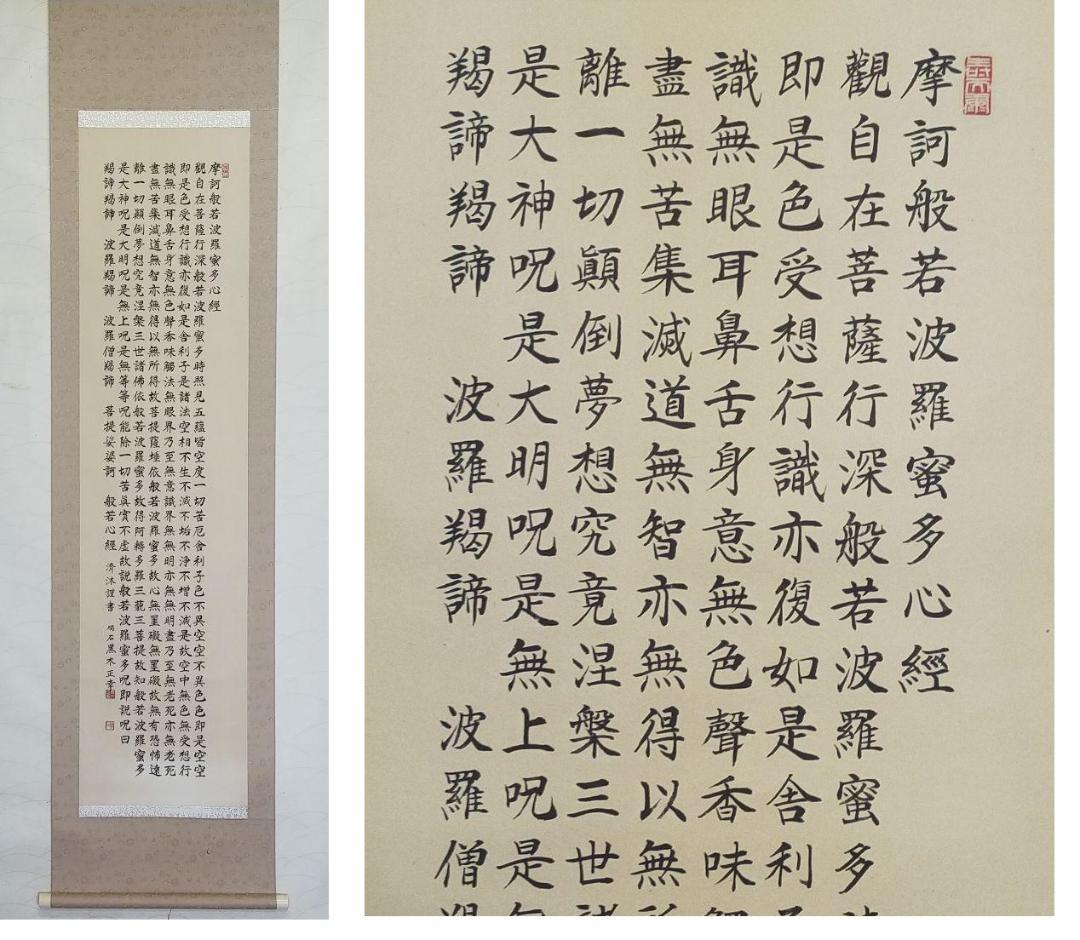 摩訶般若波羅蜜多心經
觀自在菩薩行深般若波羅蜜多時照見五蘊皆空度一切苦厄舍利子色不異空空不異色色即是空空
即是色受想行識亦復如是舍利子是諸法空相不生不滅不垢不淨不增不減是故空中無色無受想行
識無眼耳鼻舌身意無色聲香味觸法無眼界乃至無意識界無無明亦無無明盡乃至無老死亦無老死
盡無苦集滅道無智亦無得以無所得故菩提薩埵依般若波羅蜜多故心無罣礙無罣礙故無有恐怖遠
離一切顚倒夢想究竟涅槃三世諸佛依般若波羅蜜多故得阿耨多羅三藐三菩提故知般若波羅蜜多
是大神呪是大明呪是無上呪是無等等呪能除一切苦眞實不虛故説般若波羅蜜多呪即説呪曰
羯諦羯諦 波羅羯諦 波羅僧羯諦 菩提娑婆訶 般若心經 沐謹書 石黒木正
摩訶般若波羅蜜多心經
觀自在菩薩行深般若波羅蜜多
即是色受想行識亦復如是舍利
識無眼耳鼻舌身意無色聲香味
盡無苦集滅道無智亦無得以無
離一切顚倒夢想究竟涅槃三世
是大神呪是大明呪是無上呪是
羯諦羯諦 波羅羯諦 波羅僧